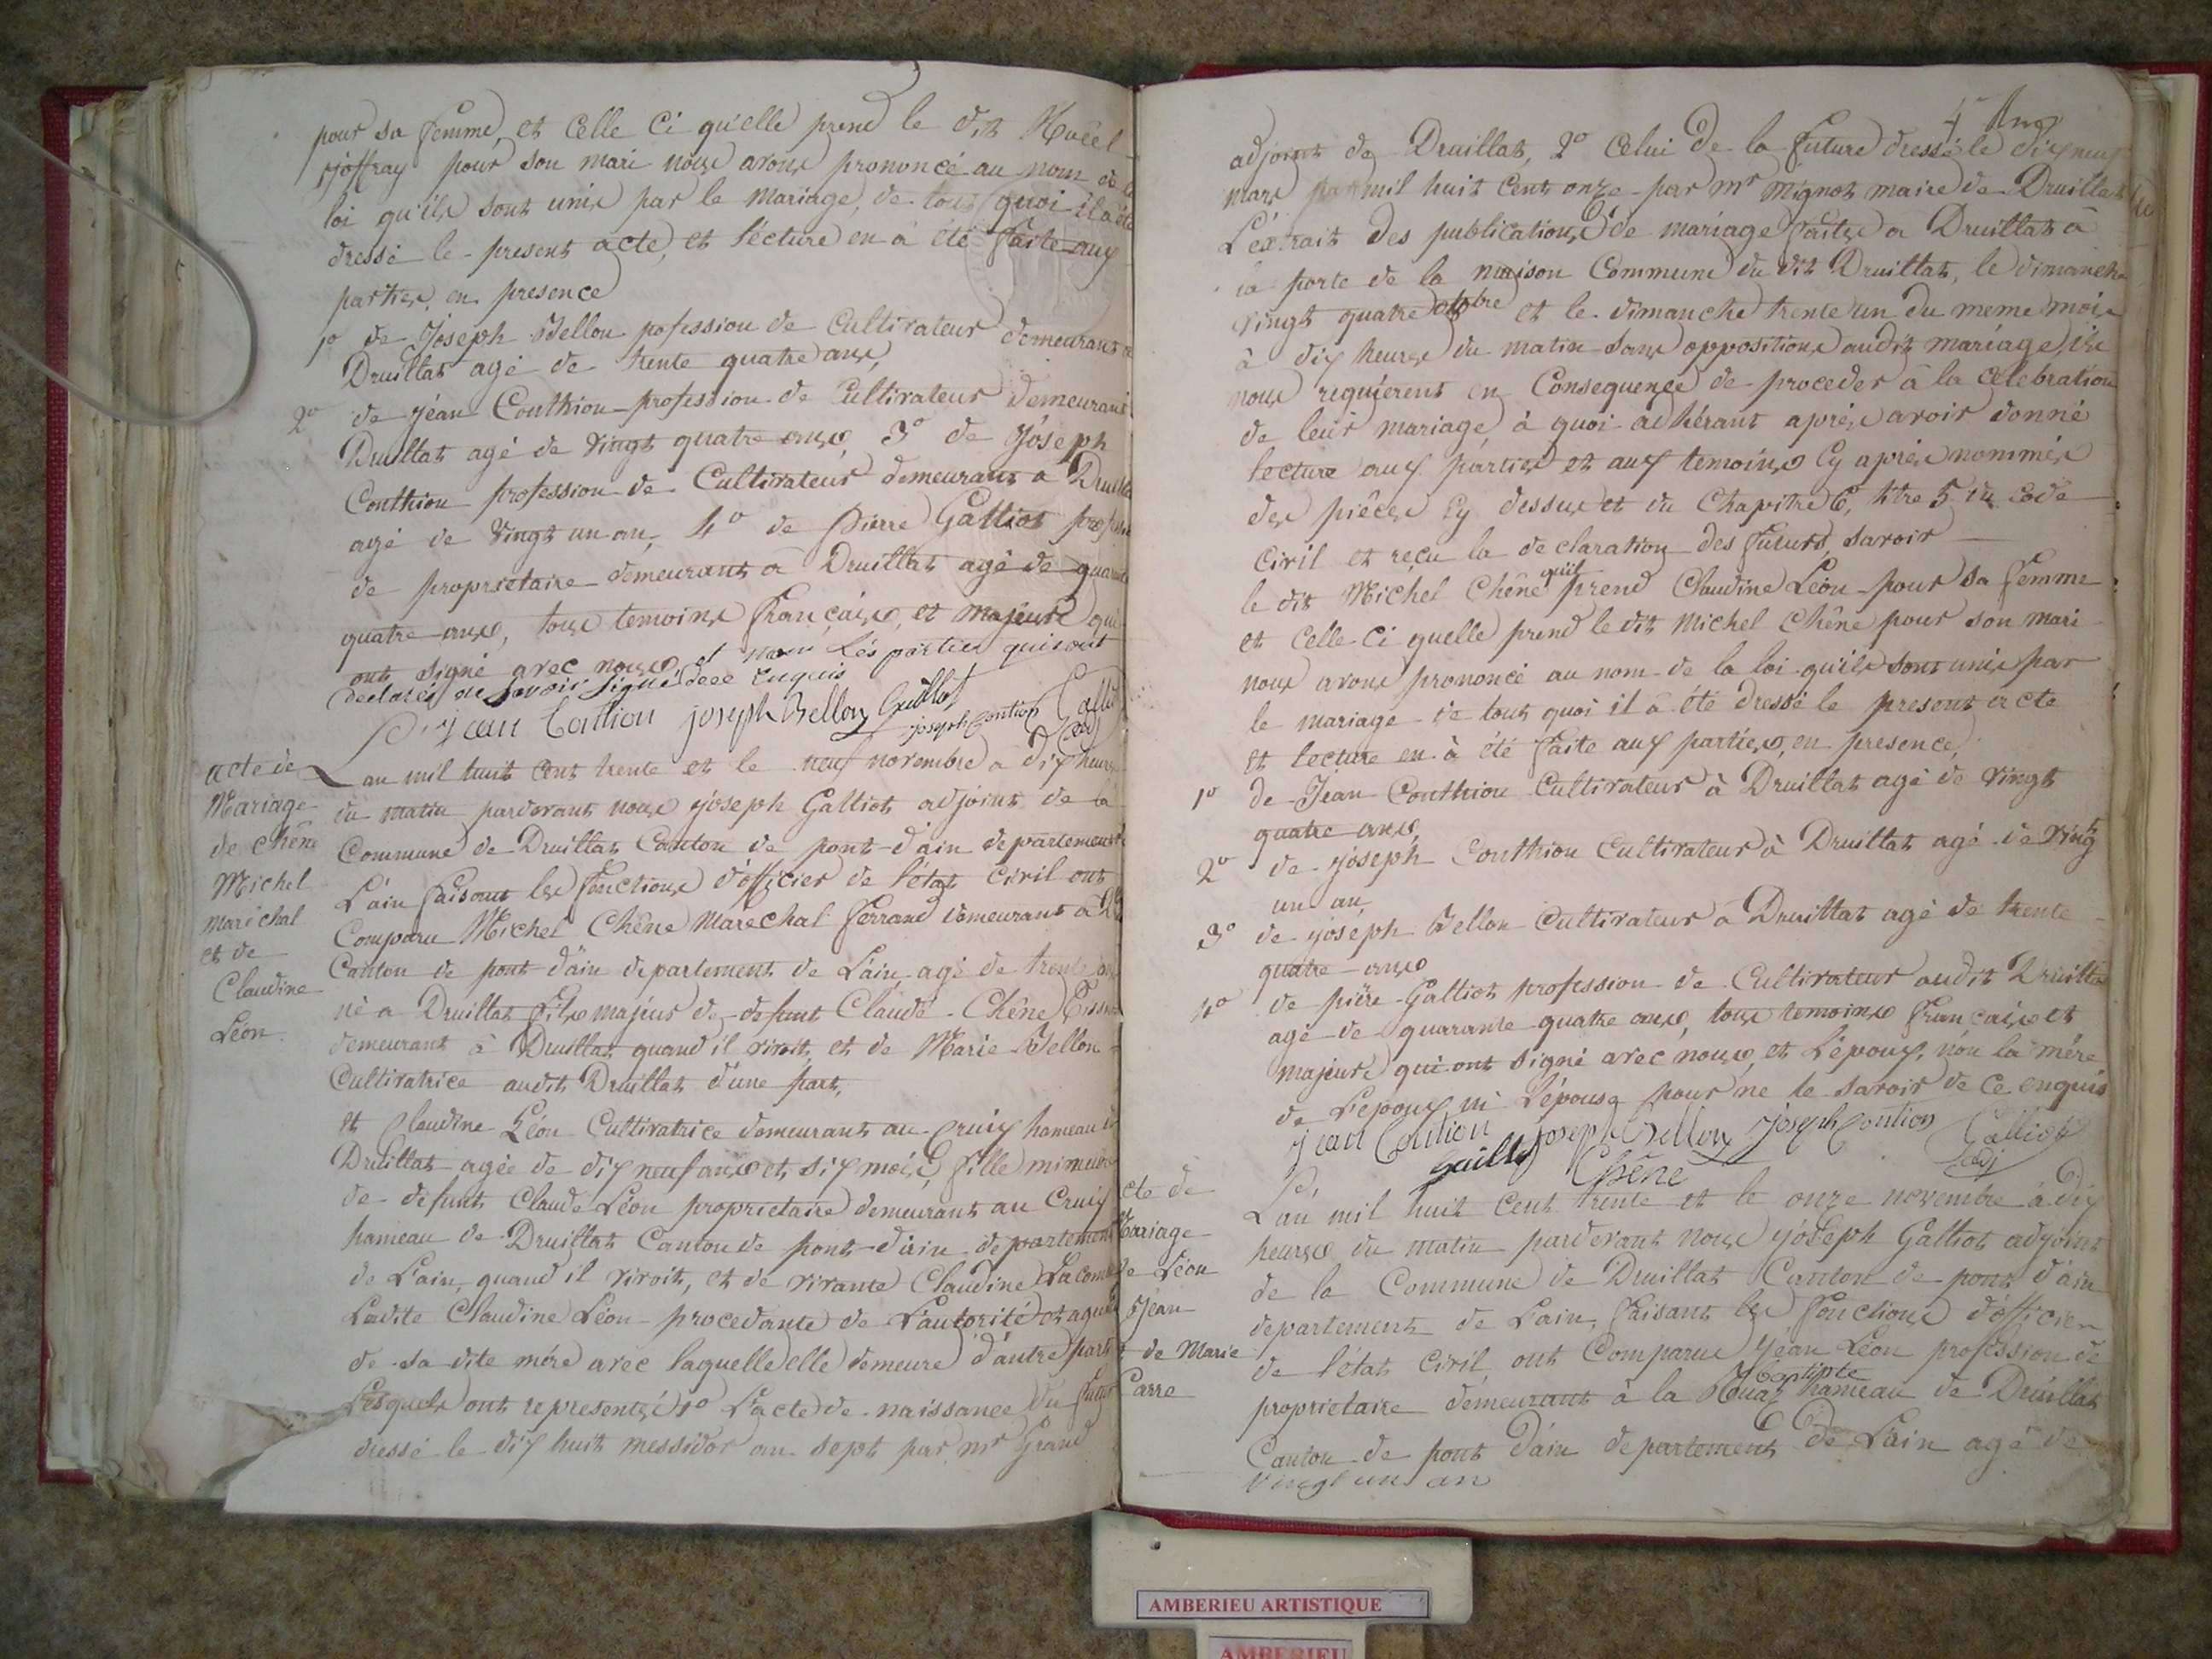 pour sa femme, et celle ci qu'elle prend le dit
joffray pour son mari nous avons prononcé au nom de la
loi qu'ils sont unis par le mariage, de tout quoi il a été
dressé le present acte, et lécture en à été faite aux
parties, en presence
1º de Joseph Bellon pofession de Cultivateur demeurant a
Druillat agé de trente quatre ans,
2º de jéan Conthion profession de Cultivateur demeurant
Druillat agé de vingt quatre ans, 3º de Joseph
Conthion profession de Cultivateur demeurant a Druillat
agé de vingt un an, 4º de pierre Galliot profession
de proprietaire demeurant a Druillat agé de quarante
quatre ans, tous temoins français, et majeurs qui
ont signé avec nous, et non Lés parties qui ont
declarés ne savoir signé de ce Enquis
jean Contion joseph Bellon Guillot
joseph Contion Galliot
adj
acte de
Mariage
de Chêne
Michel
marichal
et de
Claudine
Léon
Lan mil huit cent trente et le neuf novembre a dix heures
du matin pardevant nous joseph Galliot adjoint de la
Commune de Druillat Canton de pont-d'ain departement de
L'ain faisant les fonctions d'officier de l'état civil ont
Comparu Michel Chêne Marechal ferrand demeurant a
Canton de pont-d'ain departement de L'ain, agé de trente an
né a Druillat fils majeur de defunt Claude Chêne
demeurant à Druillat quand il vivoit, et de Marie Bellon
Cultivatrice audit Druillat d'une part,
et Claudine Léon Cultivatrice demeurant au Cruix hameau de
Druillat agée de dix neuf ans et six mois, fille mineure
de defunt Claude Léon proprietaire demeurant au Cruix
hameau de Druillat Canton de pont-d'ain departement
de L'ain, quand il vivoit, et de vivante Claudine Lacombe
Ladite Claudine Léon procedante de L'autorité et
de sa dite mére avec laquelle elle demeure d'autre part
Lesquels ont representés 1º L'acte de naissance du futur
dressé le dix huit messidor an sept par mr Grand
adjoint de Druillat, 2º Celui de la future dressé le dix neuf
mars mil huit cent onze par mr Mignot maire de Druillat
L'extrait des publications de mariage faites a Druillat à
la porte de la maison Commune du dit Druillat, le dimanche
vingt quatre octobre et le dimanche trente un du meme mois
à dix heures du matin sans oppositions audit mariage, ils
nous requierent en Consequence de proceder à la célebration
de leur mariage, à quoi adhérant aprés avoir donné
lecture aux parties et aux temoins Cy aprés nommés
des piéces Cy dessus et du Chapitre 6, titre 5 du Code
Civil et reçu la declaration des futurs, savoir
le dit Michel Chêne qu'il prend Claudine Léon pour sa femme
et Celle-Ci quelle prend le dit Michel Chêne pour son mari
nous avons prononcé au nom de la loi qu'ils sont unis par
le mariage de tout quoi il a été dressé le present acte
et lecture en à été faite aux parties, en presence,
1º de Jean Conthion Cultivateur à Druillat agé de vingt
quatre ans,
2º de joseph Conthion Cultivateur à Druillat agé de vingt
un an,
3º de joseph Bellon Cultivateur à Druillat agé de trente
quatre ans
4º de piére Galliot profession de Cultivateur audit Druillat
agé de quarante quatre ans, tous temoins français et
majeurs qui ont signé avec nous, et L'époux, non la mére
de L'epoux ni L'épouse pour ne le savoir de ce enquis
jean Contion joseph Bellon joseph Contion Galliot
Guillot Chêne adj
cte de
Mariage
de Léon
Jéan
et de Marie
Carre
L'an mil huit cent trente et le onze novembre à dix
heures du matin pardevant nous joseph Galliot adjoint
de la Commune de Druillat Canton de pont d'ain
departement de L'ain, faisant les fonctions d'officier
de l'état civil, ont Comparu Jéan Baptiste Léon profession de
proprietaire demeurant à la hameau de Druillat
Canton de pont d'ain departement de L'ain agé de
vingt un an
AMBERIEU ARTISTIQUE
AMBERIEU